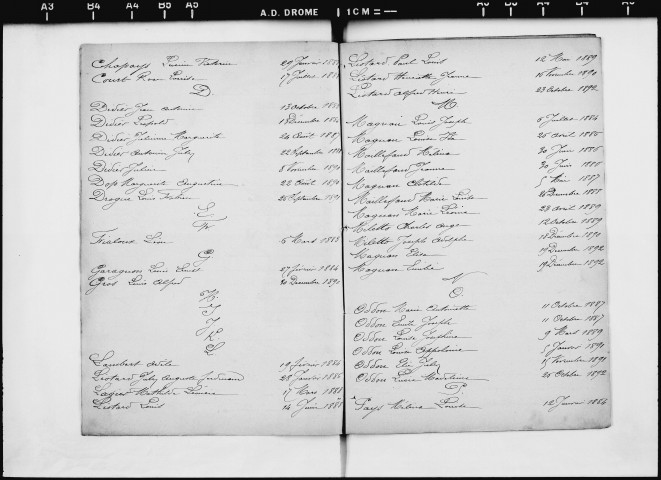 A3 B4 A4 B5 A5 A.D. DROME 1CM
Chapays Lucien
Court Rose Louise 17 Juillet
D.
Didier Jean Antoine 13 Octobre
Didier Léopold
Didier Juliana Marguerite 24 Août 1887
Didier Antonin July 22 Septembre
Didier Julien 8 Novembre 1890
Marguerite Augustine 22 Août 1890
Drogue Louis
E
F
Fialoux Léon 6 Mars 1883
G.
Garagnon Louis Ernest 27 février 1884
Gros Louis Alfred Décembre 1890
H.
I
J
K.
L
Lambert 19 février 1884
Liotard July Auguste Ferdinand 28 Janvier 1886
Mathilde 17 Mars 1888
Liotard Louis 14 Juin 1888
Liotard Paul Louis 12 Mai 1889
Liotard Henriette Jeanne 15 Novembre 1890
Liotard Alfred Henri 23 Octobre 1892
M
Magnan Louis Joseph 6 Juillet 1884
Magnan Louise 25 Août 1885
Maillefaud Hélène 30 Juin 1886
Maillefaud Jeanne 30 Juin 1886
Magnan Clotilde 5 Mai 1887
Maillefaud Marie Louise Décembre 1888
Magnan Marie Léonie 28 Avril 1889
Miletto Charles Ange 12 Octobre 1889
Miletto Joseph Adolphe Décembre 1890
Magnan Elisa Décembre 1892
Magnan Emilie Décembre 1892
N
O.
Oddon Marie Antoinette 11 Octobre 1887
Oddon Emile Joseph 11 Octobre 1887
Oddon Louise Joséphine 9 Mars 1889
Oddon Louise Appolonie 5 Janvier 1891
Oddon Elie July 15 Novembre 1891
Oddon Lucie Madeleine 26 Octobre 1892
P.
Pays Hélène Louise 12 Janvier 1884